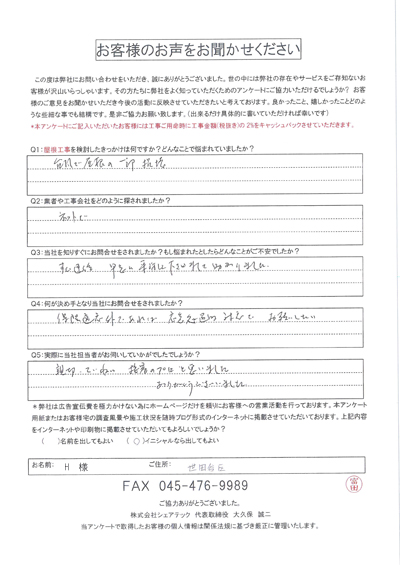 お客様のお声をお聞かせください
この度は弊社にお問い合わせをいただき、誠にありがとうございました。世の中には弊社の存在やサービスをご存知ないお
客様が沢山いらっしゃいます。その方たちに弊社をよく知っていただくためのアンケートにご協力いただけるでしょうか? お客
様のご意見をお聞かせいただき今後の活動に反映させていただきたいと考えております。良かったこと、嬉しかったことどのよ
うな些細な事でも結構です。是非ご協力お願い致します。(出来るだけ具体的に書いていただければ幸いです)
*本アンケートにご記入いただいたお客様には工事ご用命時に工事金額(税抜き)の2%をキャッシュバックさせていただきます。
Q1:屋根工事を検討したきっかけは何ですか?どんなことで悩まれていましたか?
台風で屋根の一部損壊
Q2:業者や工事会社をどのように探されましたか?
ネットで
Q3:当社を知りすぐにお問合せをされましたか?もし悩まれたとしたらどんなことがご不安でしたか?
Q4:何が決め手となり当社にお問合せをされましたか?
Q5:実際に当社担当者がお伺いしていかがでしたでしょうか?
親切、ていねい 技術のプロと思いました
ありがとうございました
*弊社は広告宣伝費を極力かけない為にホームページだけを頼りにお客様への営業活動を行っております。本アンケート
用紙またはお客様宅の調査風景や施工状況を随時ブログ形式のインターネットに掲載させていただいております。上記内容
をインターネットや印刷物に掲載させていただいてもよろしいでしょうか?
( )名前を出してもよい (○)イニシャルなら出してもよい
お名前: H 様 ご住所: 世田谷区
FAX 045-476-9989
ご協力ありがとうございました。
株式会社シェアテック 代表取締役 大久保 誠二
当アンケートで取得したお客様の個人情報は関係法規に基づき厳正に管理いたします。